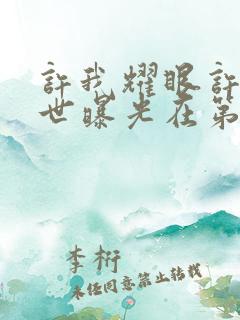 許我耀眼許
世曝光在第
李桁
未经同意禁止转载